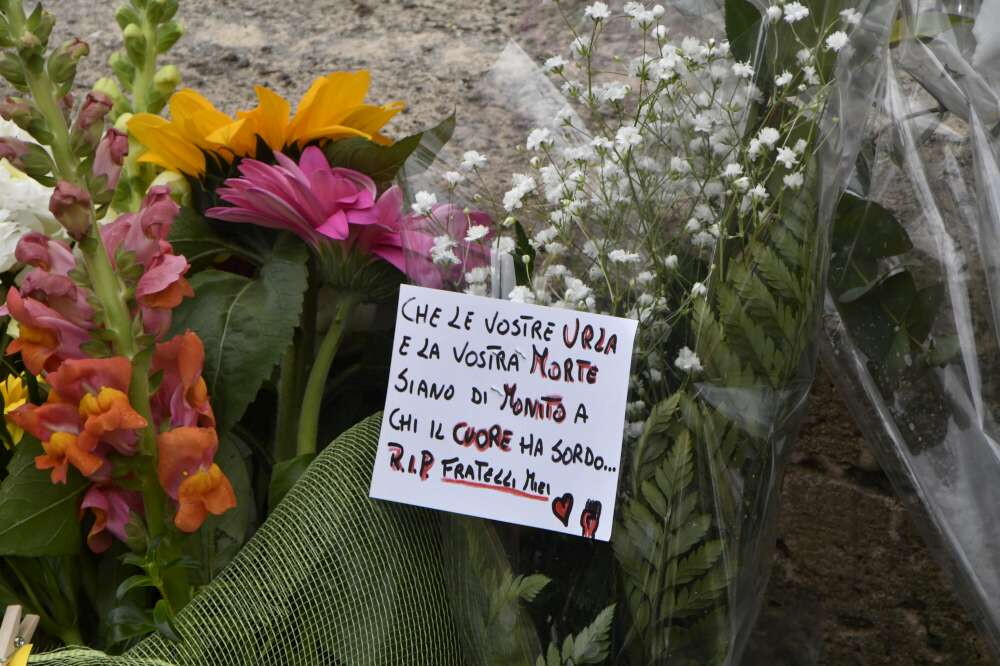 CHE LE VOSTRE URLA
E LA VOSTRA MORTE
SIANO DI MONITO A
CHI IL CUORE HA SORDO...
R.I.P FRATELLI MIEI